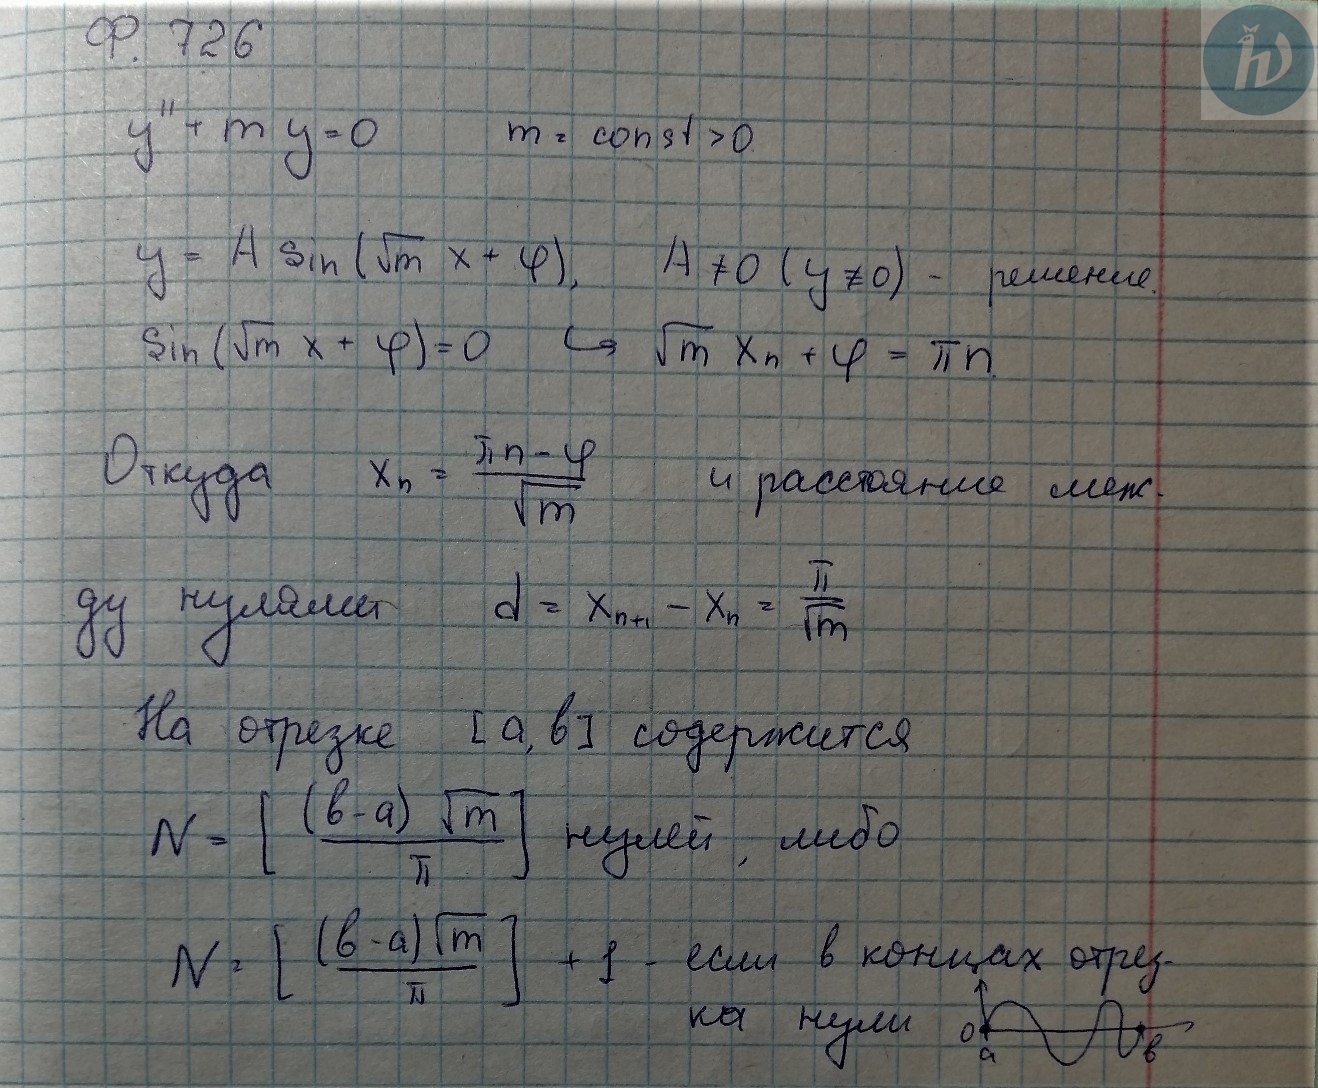 Ф. 726
y'' + m y = 0 m = const > 0
y = A sin(√m x + φ), A ≠ 0 (y ≢ 0) - решение.
sin(√m x + φ) = 0 ↪ √m xₙ + φ = πn.
Откуда xₙ = (πn - φ)/√m и расстояние меж-
ду нулями d = xₙ₊₁ - xₙ = π/√m
На отрезке [a, b] содержится
N = [(b-a)√m/π] нулей, либо
N = [(b-a)√m/π] + 1 - если в концах отрез-
ка нули
0
a b